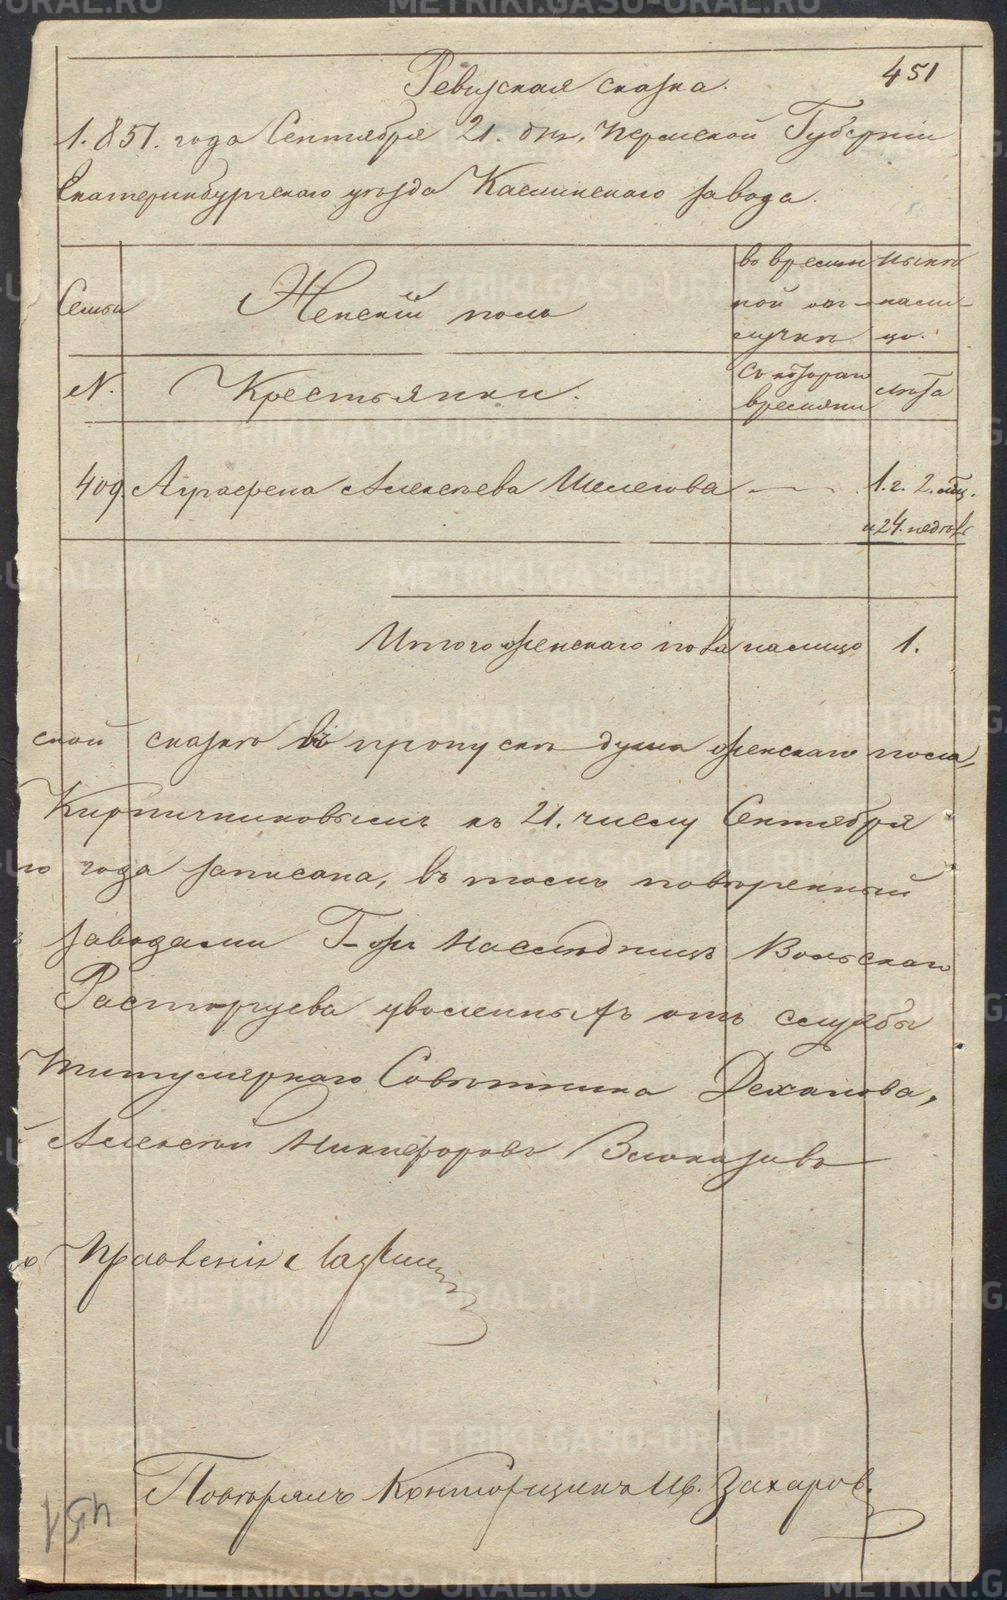 451
Ревизская сказка.
1.851. года Сентября 21. дня, Пермской Губерніи
Екатеринбургскаго уѣзда Каслинскаго завода.
Семьи
Женскій полъ
во времен
ной от-
лучкѣ
нынѣ
нали-
цо.
N.
Крестьянки.
Съ котораго
времяни
лѣта
409. Аграфена Алексѣева Шелегова — 1.г. 2. мѣц.
и 24. недѣль
Итого женскаго пола налицо 1.
ской сказкѣ въ пропускѣ душа женскаго пола,
Кирпичниковымъ къ 21. числу Сентября
го года записана, въ томъ повѣренный
заводами Г-жъ Наслѣдницъ Вольскаго
Расторгуева уволенныхъ отъ службы
Титулярнаго Совѣтника Деханова,
й Алексѣй Никифоровъ
Правленія
Повѣрялъ Конторщикъ Ив. Захаров.
451
METRIKI.GASO-URAL.RU